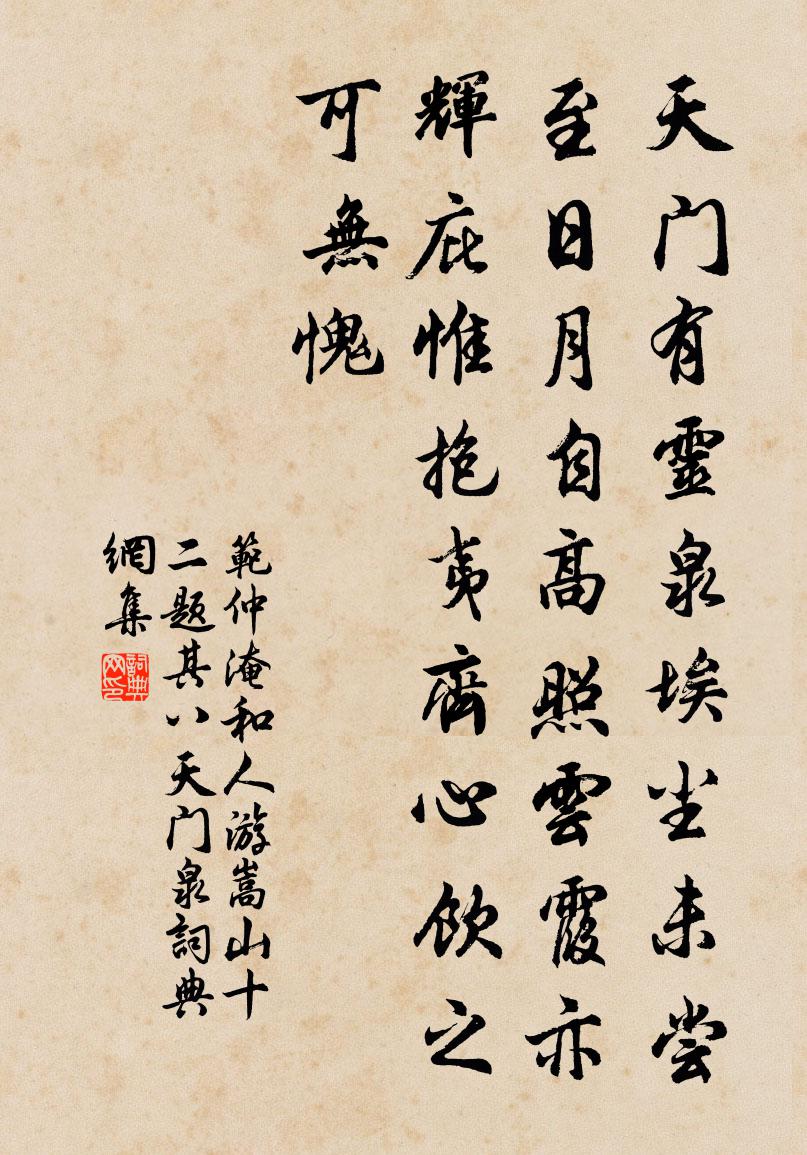 天门有靈泉埃尘未尝
至日月自高照雲霞亦
輝庇惟抱夷齊心飲之
可無愧
範仲淹和人游嵩山十
二题其八天门泉詞典
網集
詞典网印